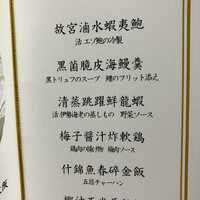 故宮滷水蝦夷鮑
活 エゾ鮑の冷製
黒菌脆皮海鰻羹
黒トリュフのスープ 鱧のフリット添え
清蒸跳躍鮮龍蝦
活 伊勢海老の蒸しもの 野菜ソース
梅子醤汁炸軟鶏
鶏肉の揚げ物 梅肉ソース
什錦魚春碎金飯
五目チャーハン